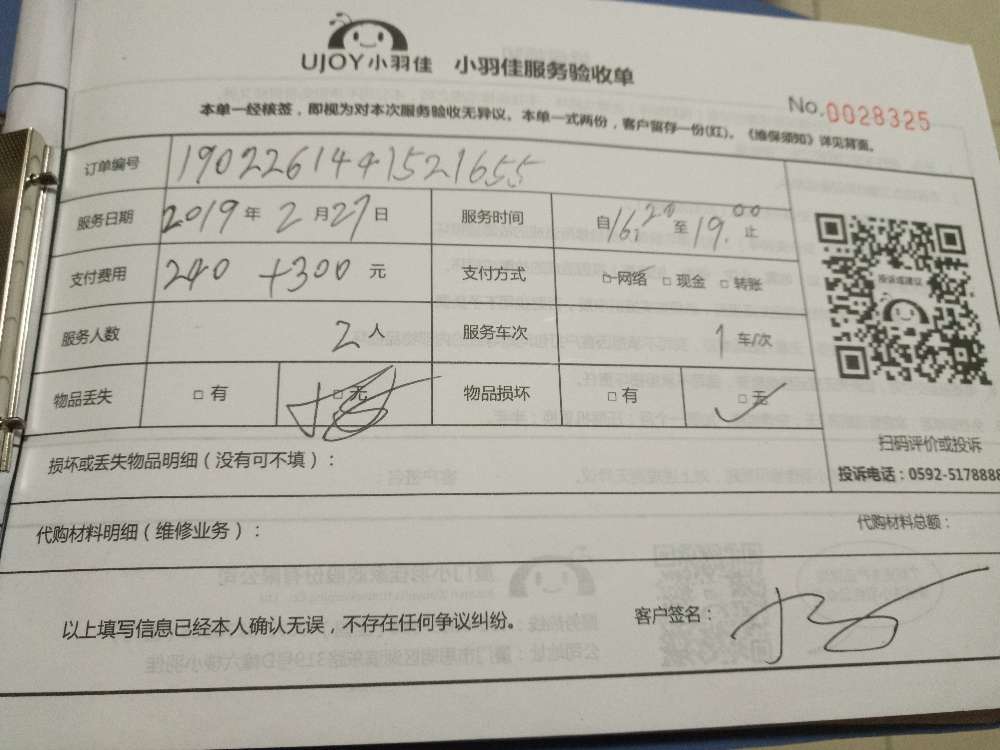 UJOY小羽佳 小羽佳服务验收单
No.0028325
本单一经核签，即视为对本次服务验收无异议。本单一式两份，客户留存一份(红)。《维保须知》详见背面。
订单编号 1902261441521655
服务日期 2019年2月27日 服务时间 自16:20至19:00止
支付费用 240 +300 元 支付方式 □网络 □现金 □转账
服务人数 2人 服务车次 1车/次
物品丢失 □有 □无 物品损坏 □有 □无
投诉或建议
扫码评价或投诉
投诉电话：0592-5178888
损坏或丢失物品明细（没有可不填）：
代购材料明细（维修业务）： 代购材料总额：
以上填写信息已经本人确认无误，不存在任何争议纠纷。 客户签名：